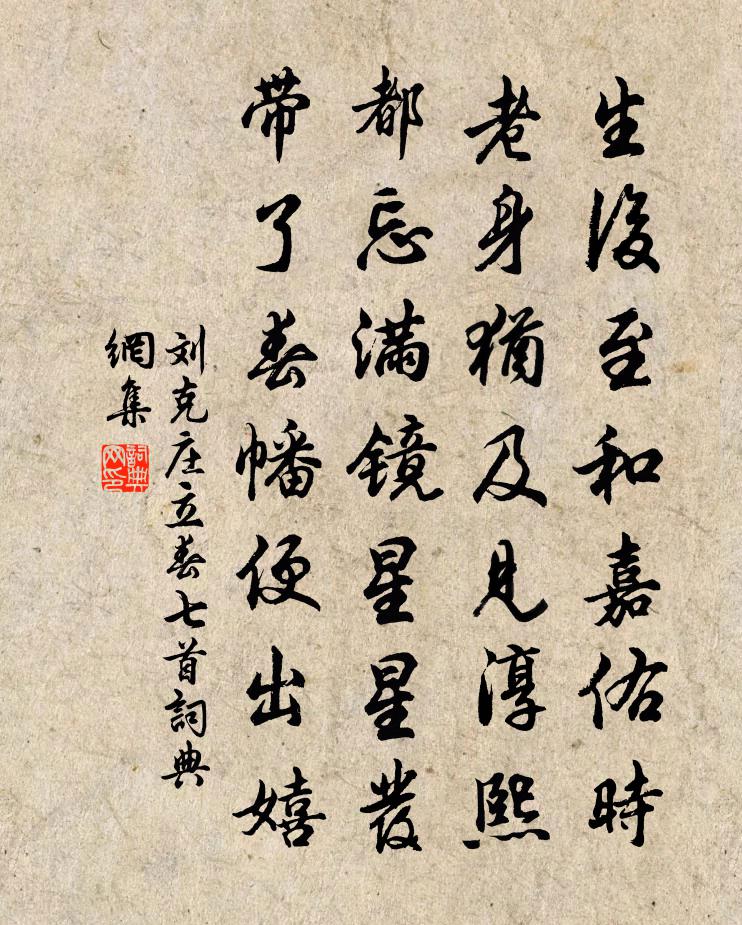 生後至和嘉佑時
老身猶及見淳熙
都忘滿镜星星發
带了春幡便出嬉
刘克庄立春七首詞典
網集
詞典
网印